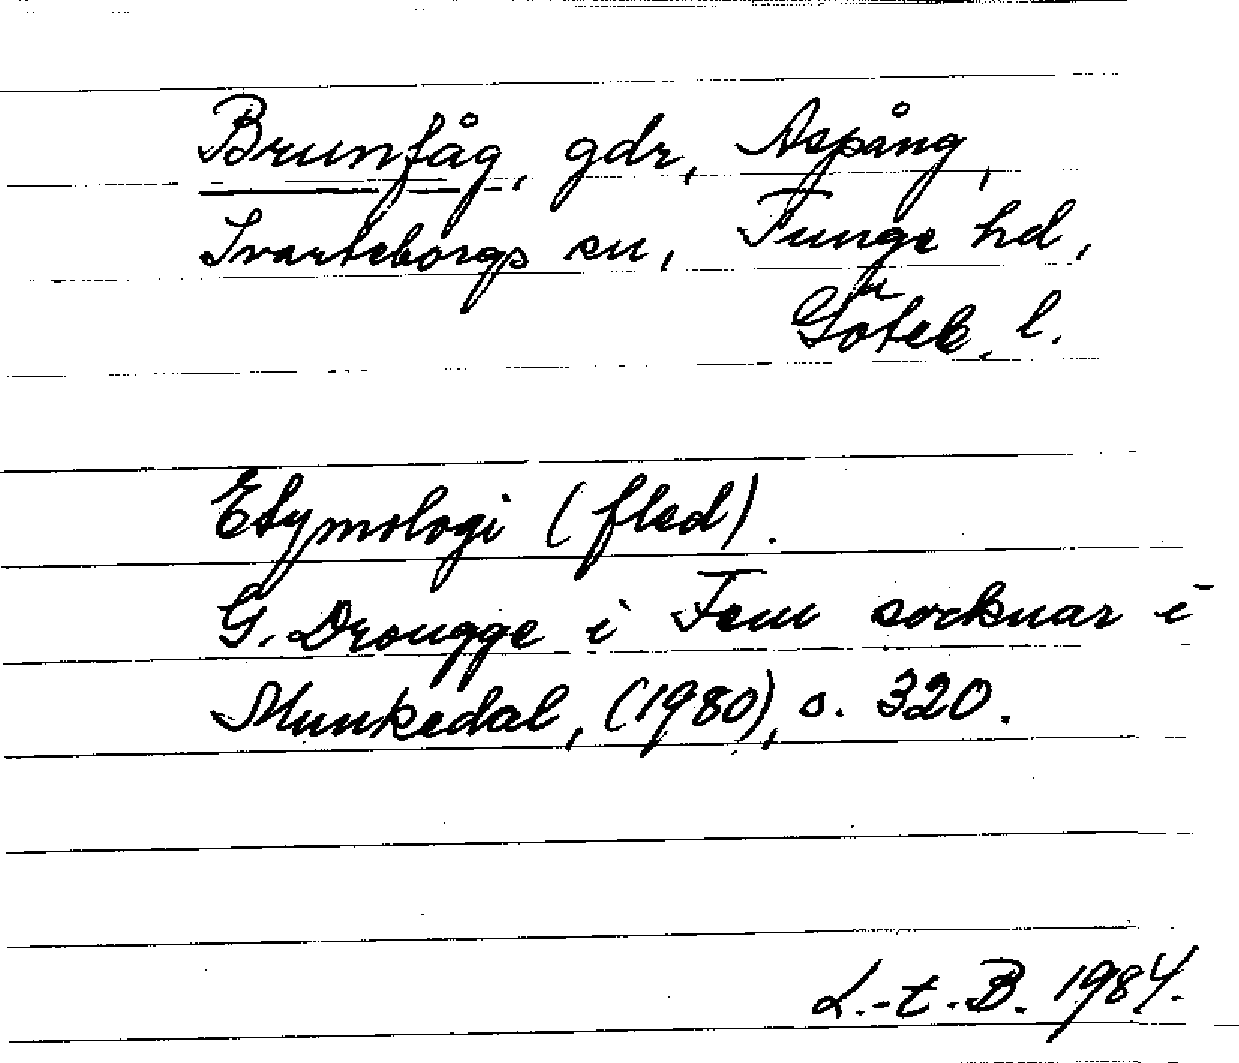 Brunfåg, gdr, Aspång,
Svarteborgs sn, Tunge hd,
Göteb. l.
Etymologi (fled).
G. Drougge i Fem socknar i
Munkedal, (1980), s. 320.
L.-t. B. 1984.